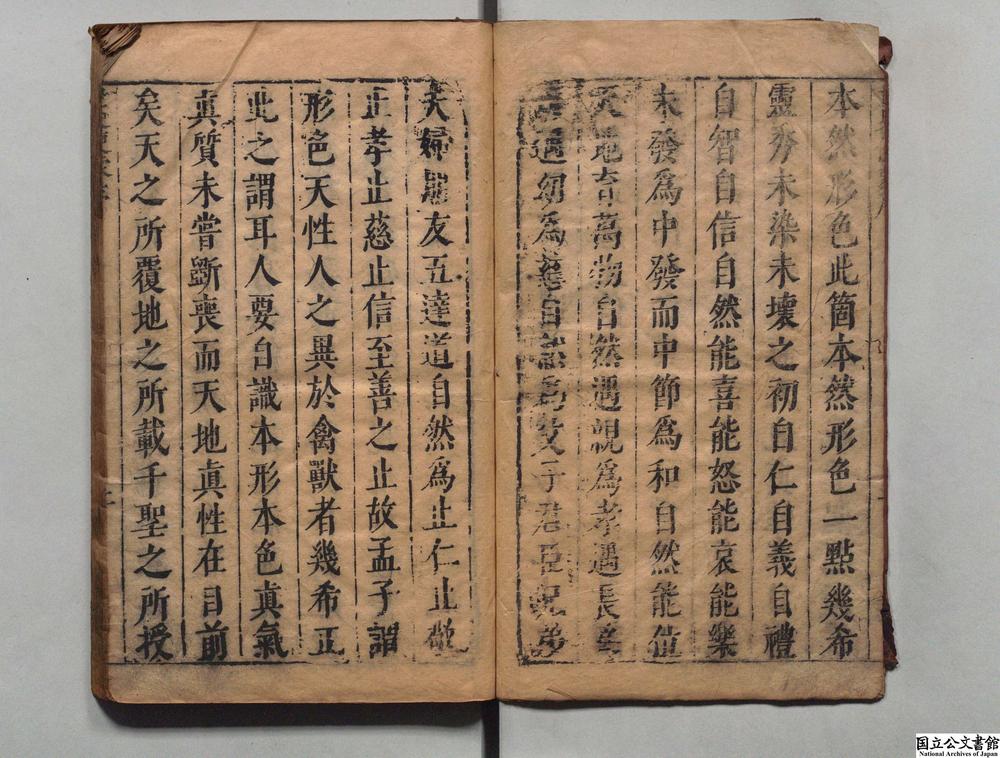 本然形色此箇本然形色一點幾希
靈秀未染未壞之初自仁自義自禮
自智自信自然能喜能怒能哀能樂
未發爲中發而中節爲和自然能位
天地育萬物自然遇親爲孝遇長爲
遇幼爲慈自然爲父子君臣兄弟
夫婦朋友五達道自然爲止仁止敬
止孝止慈止信至善之止故孟子謂
形色天性人之異於禽獸者幾希正
此之謂耳人要自識本形本色眞氣
眞質未嘗斷喪而天地眞性在目前
矣天之所覆地之所載千聖之所授
国立公文書館
National Archives of Japan